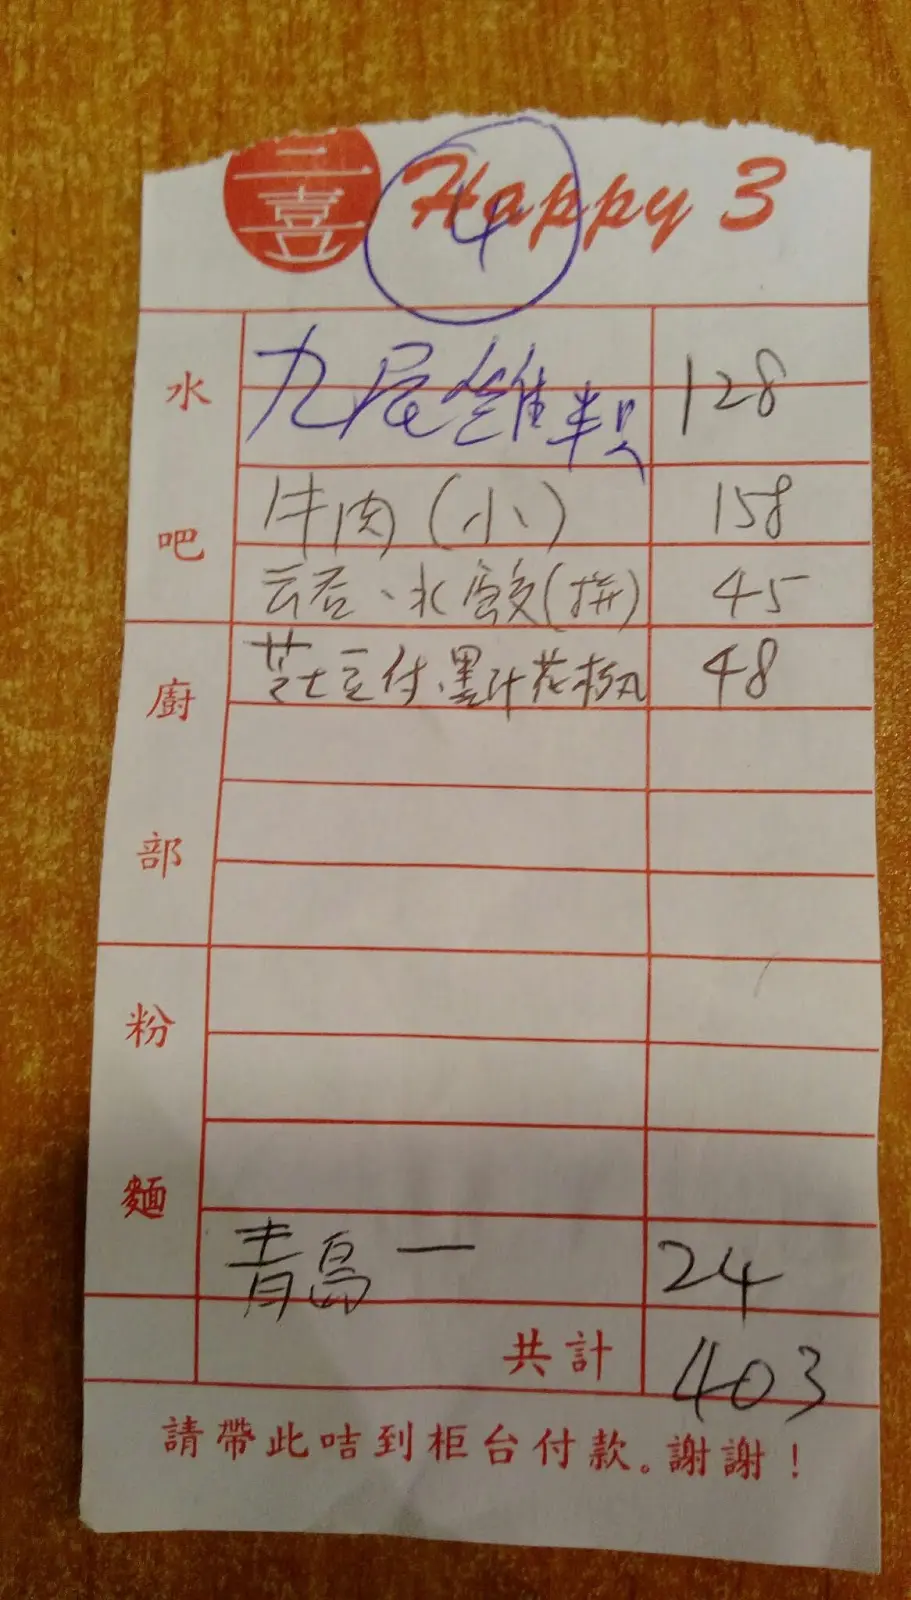 三喜 Happy 3
4
水吧
九尾雞半只 128
牛肉(小) 158
云吞、水餃(拼) 45
廚部
芝士豆付、墨汁花枝丸 48
粉麵
青島一 24
共計 403
請帶此咭到柜台付款。謝謝!